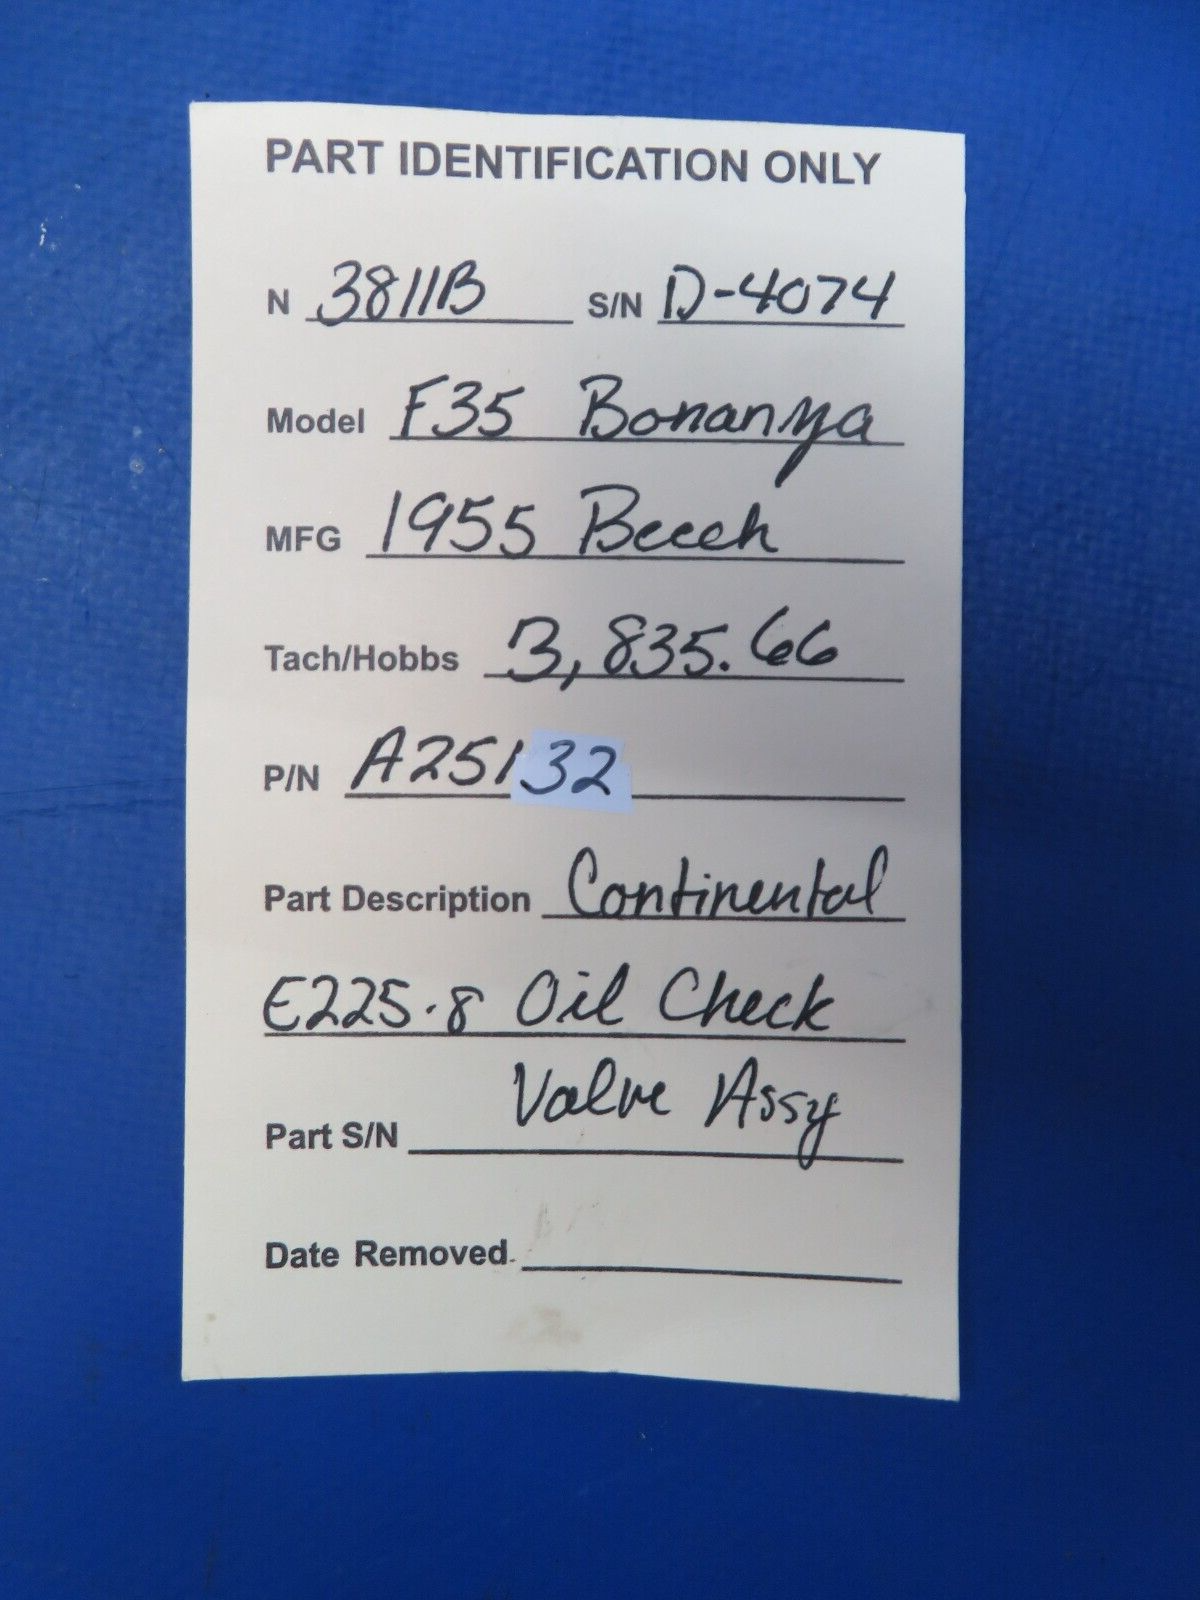 PART IDENTIFICATION ONLY
N 3811B S/N D-4074
Model F35 Bonanza
MFG 1955 Beech
Tach/Hobbs 3,835.66
P/N A25132
Part Description Continental
E225-8 Oil Check
Valve Assy
Part S/N
Date Removed